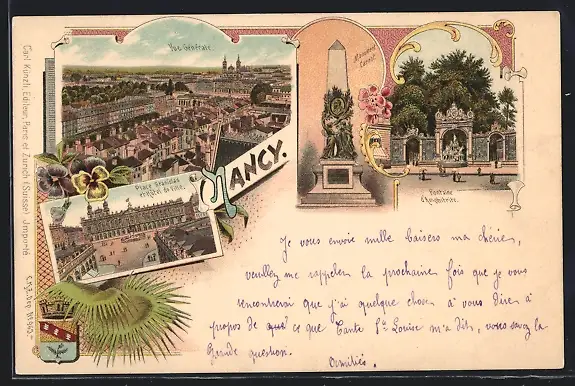 Vue Générale.
Monument
Carnot.
NANCY.
Place Stanislas
et Hôtel de Ville.
Fontaine
d'Amphitrite.
Carl Künzli, Editeur, Paris et Zürich (Suisse) Importé.
Je vous envoie mille baisers ma chérie,
veuillez me rappeler la prochaine fois que je vous
rencontrerai que j'ai quelque chose à vous dire à
propos de ce que Tante Ste Louise m'a dit, vous savez la
Grande question.
Amitiés.